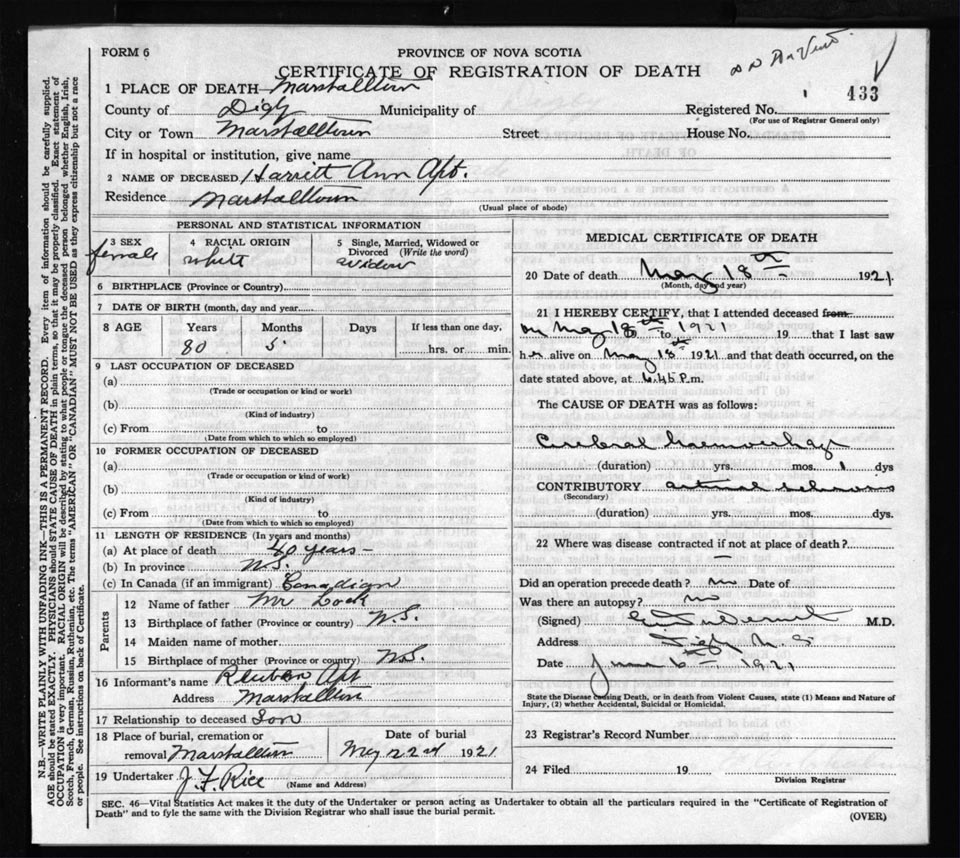 FORM 6
PROVINCE OF NOVA SCOTIA
CERTIFICATE OF REGISTRATION OF DEATH
1 PLACE OF DEATH—Marshalltown
433
County of Digby Municipality of Registered No.
(For use of Registrar General only)
City or Town Marshalltown Street House No.
If in hospital or institution, give name
2 NAME OF DECEASED Harriett Ann Apt.
Residence Marshalltown
(Usual place of abode)
PERSONAL AND STATISTICAL INFORMATION
3 SEX 4 RACIAL ORIGIN 5 Single, Married, Widowed or Divorced (Write the word)
female white widow
6 BIRTHPLACE (Province or Country)
7 DATE OF BIRTH (month, day and year
8 AGE Years Months Days If less than one day,
80 5 hrs. or min.
9 LAST OCCUPATION OF DECEASED
(a)
(Trade or occupation or kind or work)
(b)
(Kind of industry)
(c) From to
(Date from which to which so employed)
10 FORMER OCCUPATION OF DECEASED
(a)
(Trade or occupation or kind of work)
(b)
(Kind of industry)
(c) From to
(Date from which to which so employed)
11 LENGTH OF RESIDENCE (In years and months)
(a) At place of death 40 years—
(b) In province N.S.
(c) In Canada (if an immigrant) Canadian
Parents
12 Name of father Mr
13 Birthplace of father (Province or country) N.S.
14 Maiden name of mother
15 Birthplace of mother (Province or country) N.S.
16 Informant's name Reuben Apt
Address Marshalltown
17 Relationship to deceased Son
18 Place of burial, cremation or Date of burial
removal Marshalltown May 22nd 1921
19 Undertaker J. F. Rice
(Name and Address)
MEDICAL CERTIFICATE OF DEATH
20 Date of death May 18th 1921
(Month, day and year)
21 I HEREBY CERTIFY, that I attended deceased from
on May 18th to 1921 19 that I last saw
her alive on May 18th 1921 and that death occurred, on the
date stated above, at 6.45 P.m.
The CAUSE OF DEATH was as follows:
Cerebral haemorrhage
(duration) yrs. mos. 1 dys
CONTRIBUTORY arterial sclerosis
(Secondary)
(duration) yrs. mos. dys.
22 Where was disease contracted if not at place of death?
Did an operation precede death? no Date of
Was there an autopsy? no
(Signed) M.D.
Address Digby N.S.
Date June 6th 1921
State the Disease Causing Death, or in death from Violent Causes, state (1) Means and Nature of
Injury, (2) whether Accidental, Suicidal or Homicidal.
23 Registrar's Record Number
24 Filed 19
Division Registrar
SEC. 46—Vital Statistics Act makes it the duty of the Undertaker or person acting as Undertaker to obtain all the particulars required in the "Certificate of Registration of
Death" and to fyle the same with the Division Registrar who shall issue the burial permit.
(OVER)
N.B.—WRITE PLAINLY WITH UNFADING INK—THIS IS A PERMANENT RECORD. Every item of information should be carefully supplied.
AGE should be stated EXACTLY. PHYSICIANS should STATE CAUSE OF DEATH in plain terms, so that it may be properly classified. Exact statement of
OCCUPATION is very important. RACIAL ORIGIN will be described by stating to what people or tongue the deceased person belonged whether English, Irish,
Scotch, French, German, Russian, Ruthenian, etc. The terms "AMERICAN" or "CANADIAN" MUST NOT BE USED as they express citizenship but not a race
or people. See instructions on back of Certificate.